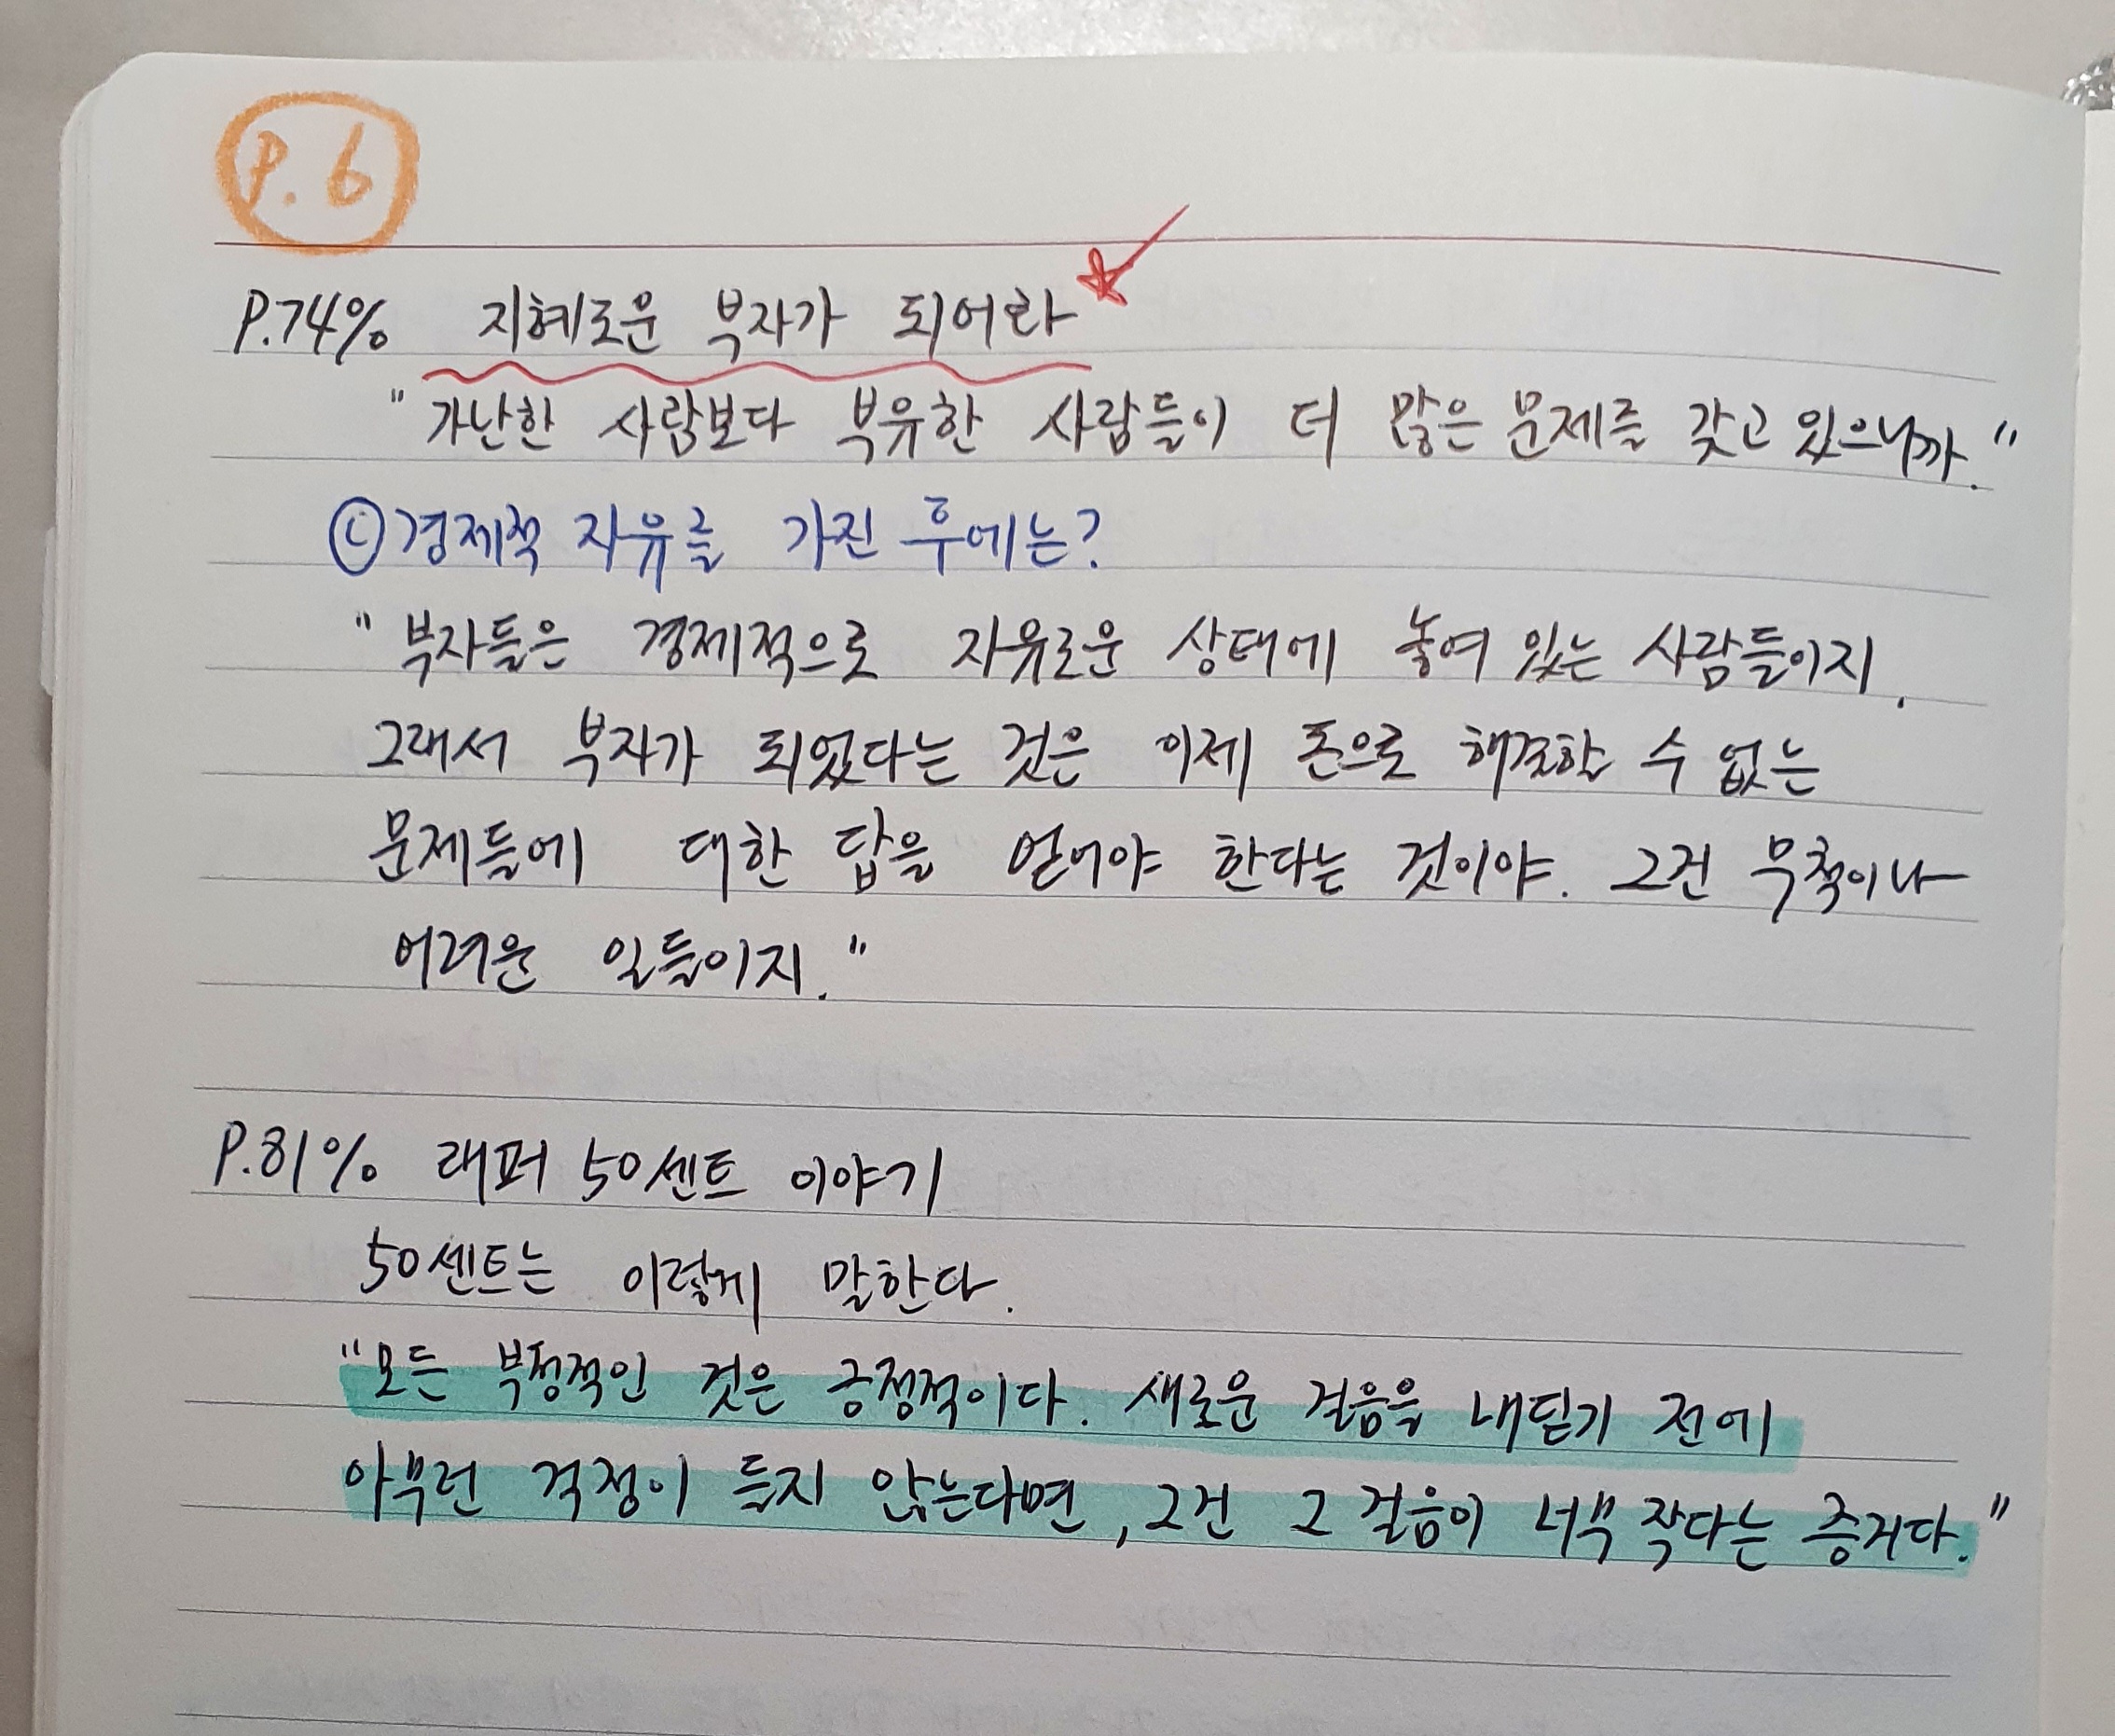 P.6
P.74% 지혜로운 부자가 되어라
"가난한 사람보다 부유한 사람들이 더 많은 문제를 갖고 있으니까."
ⓒ 경제적 자유를 가진 후에는?
"부자들은 경제적으로 자유로운 상태에 놓여 있는 사람들이지.
그래서 부자가 되었다는 것은 이제 돈으로 해결할 수 없는
문제들에 대한 답을 얻어야 한다는 것이야. 그건 무척이나
어려운 일들이지."
P.81% 래퍼 50센트 이야기
50센트는 이렇게 말한다.
"모든 부정적인 것은 긍정적이다. 새로운 걸음을 내딛기 전에
아무런 걱정이 들지 않는다면, 그건 그 걸음이 너무 작다는 증거다."